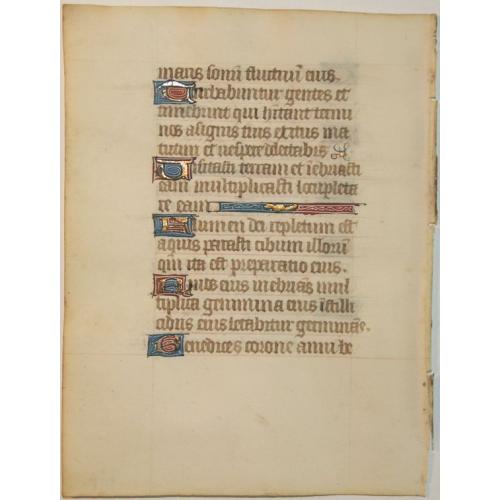 maris sonū fluctuū eius.
Turbabuntur gentes et
timebunt qui hītant termi
nos a signis tuis exitus ma
tutini et uespere delectabis
Uisitasti terram et īebriasti
eam multiplicasti locupleta
re eam
Flumen dei repletum est
aquis parasti cibum illorū
qm̄ ita est preparatio eius.
Riuos eius inebrians mul
tiplica genimina eius ī stilli
cidiis eius letabitur germinās.
Benedices corone anni be